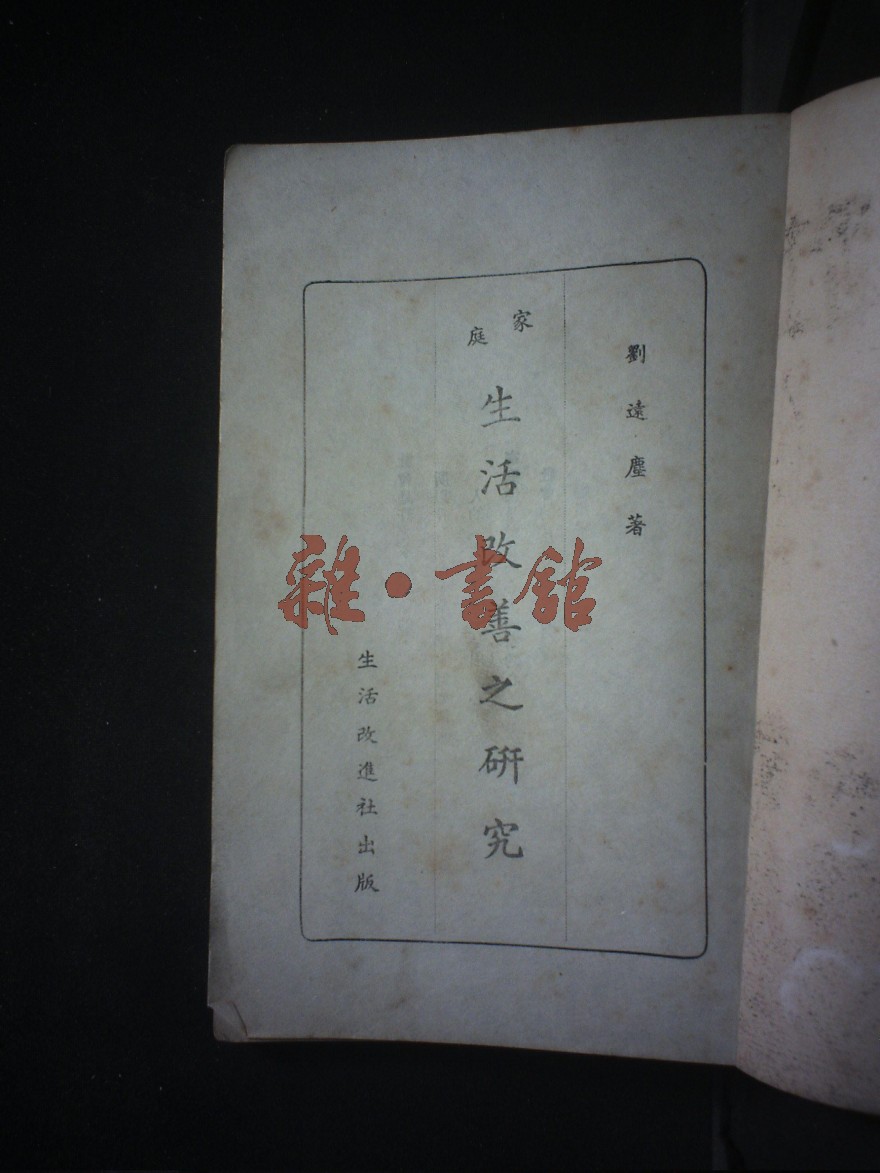 劉遠塵著
家庭
生活改善之研究
生活改進社出版
雜·書館